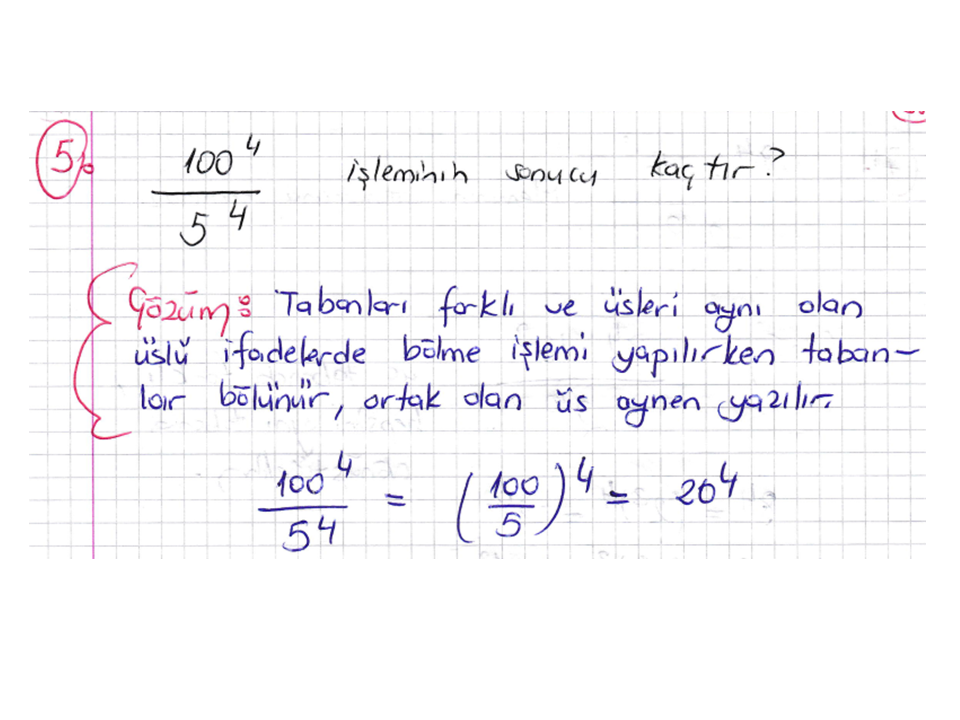 5) 100^4 / 5^4 işleminin sonucu kaçtır?
Çözüm: Tabanları farklı ve üsleri aynı olan
üslü ifadelerde bölme işlemi yapılırken taban-
lar bölünür, ortak olan üs aynen yazılır.
100^4 / 5^4 = (100/5)^4 = 20^4